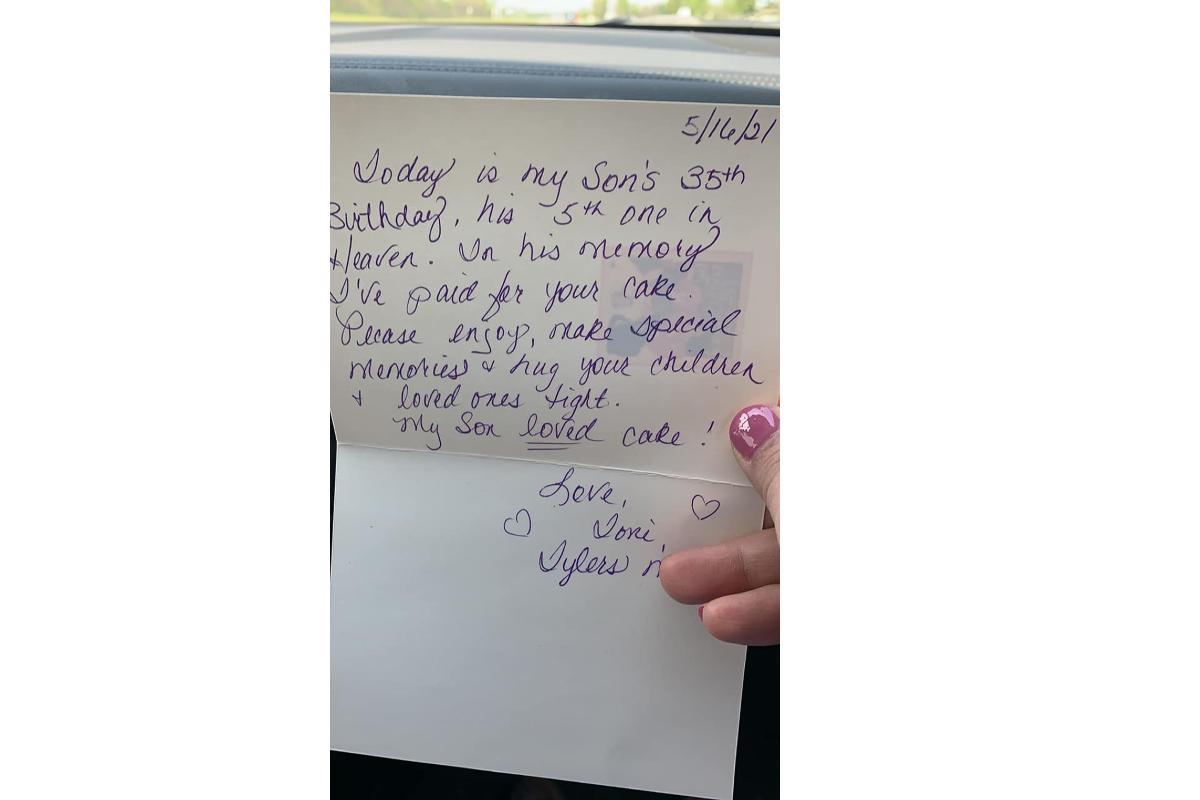 5/16/21
Today is my Son's 35th
Birthday, his 5th one in
Heaven. In his memory
I've paid for your cake.
Please enjoy, make special
memories & hug your children
& loved ones tight.
My Son loved cake!
Love,
Toni,
Tylers